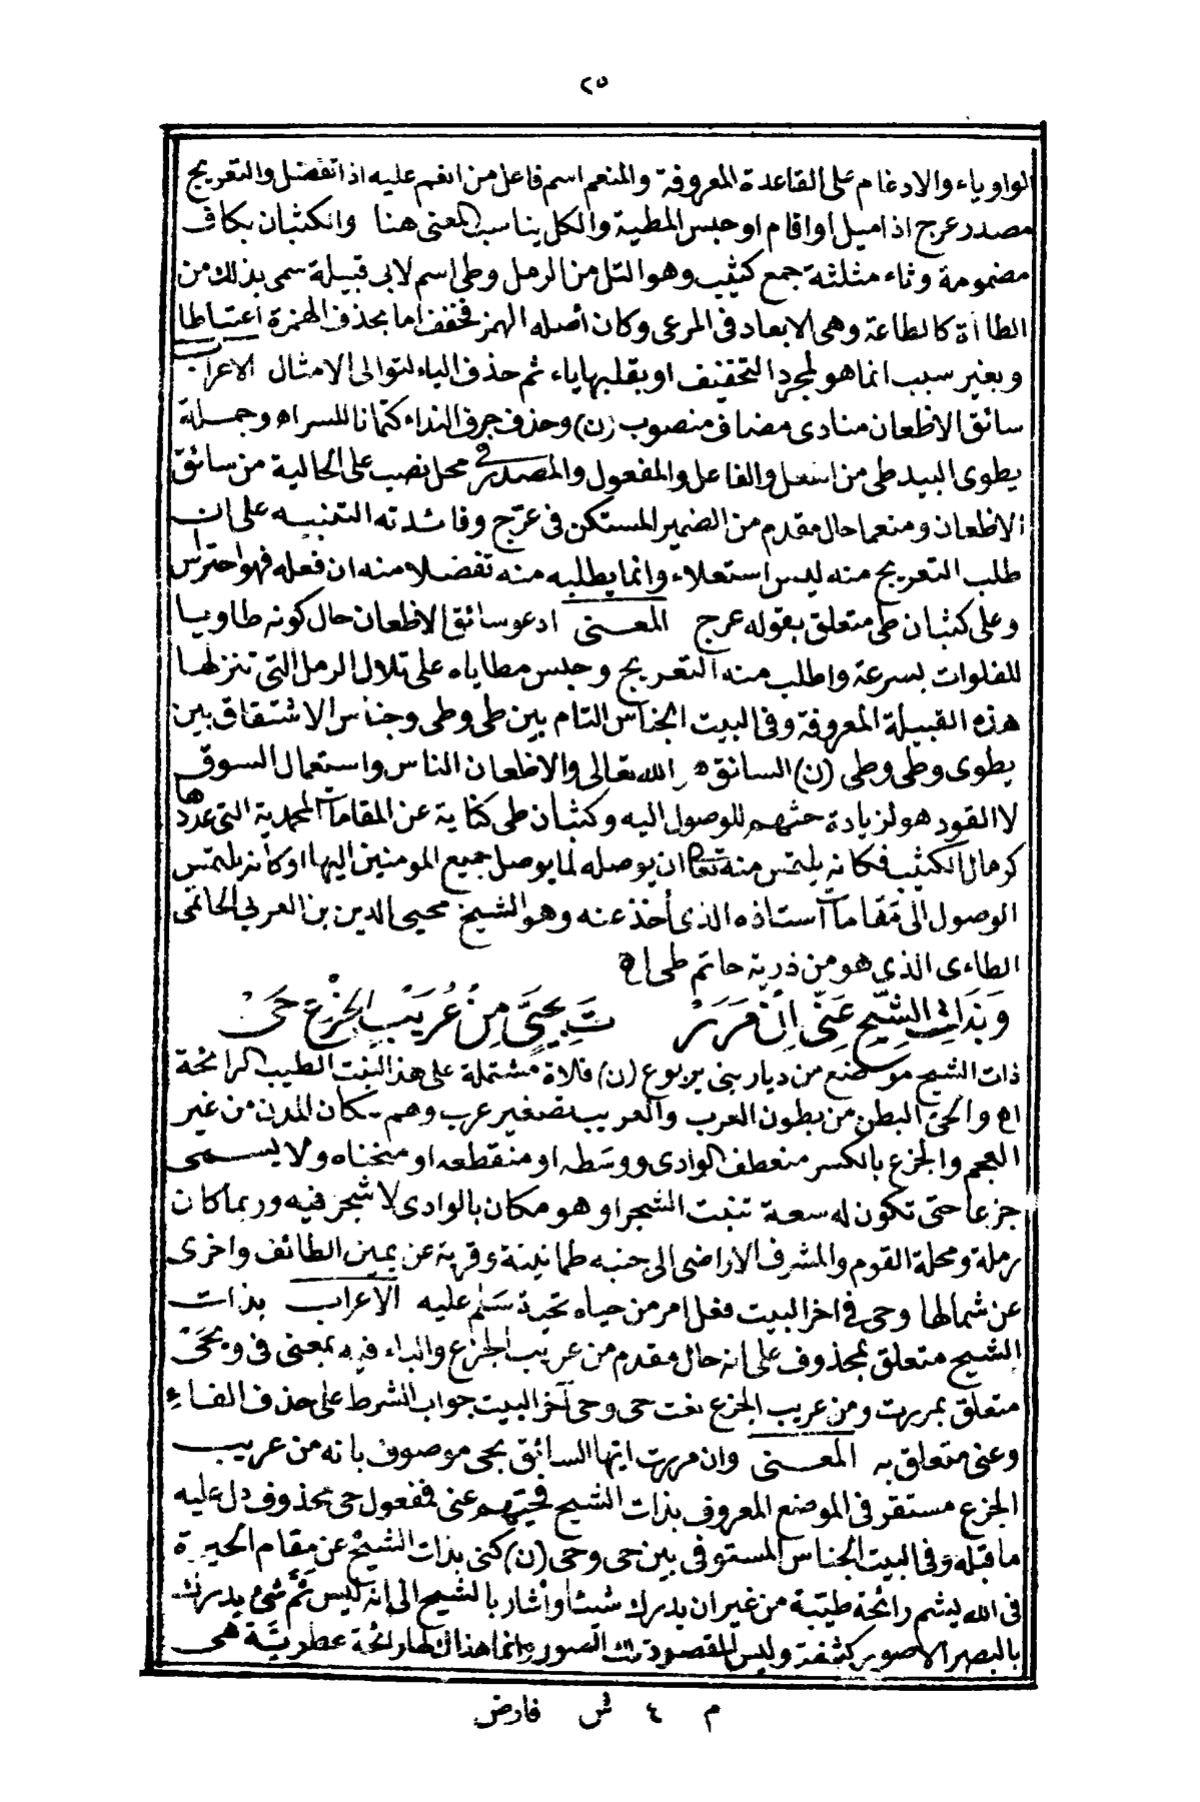 ٢٥
الواو ياء والادغام على القاعدة المعروفة والمنعم اسم فاعل من انعم عليه اذا تفضل والتعريج
مصدر عرج اذا ميل او اقام او حبس المطية والكل يناسب المعنى هنا والكثبان بكاف
مضمومة وثاء مثلثة جمع كثيب وهو التل من الرمل وطى اسم لابى قبيلة سمى بذلك من
الطاأة كالطاعة وهى الابعاد فى المرعى وكان أصله الهمز فخفف اما بحذف الهمزة اعتباطا
وبغير سبب انما هو لمجرد التخفيف او بقلبها ياء ثم حذف الياء لتوالى الامثال الاعراب
سائق الاظعان منادى مضاف منصوب (ن) وحذف حرف النداء كتمانا للسر اه وجملة
يطوى البيد طى من الفعل والفاعل والمفعول والمصدر فى محل نصب على الحالية من سائق
الاظعان ومنعما حال مقدم من الضمير المستكن فى عرّج وفائدته التنبيه على ان
طلب التعريج منه ليس استعلاء وانما يطلبه منه تفضلا منه ان فعله فهو احتراس
وعلى كثبان طى متعلق بقوله عرج المعـنى ادعو سائق الاظعان حال كونه طاويا
للفلوات بسرعة واطلب منه التعريج وحبس مطاياه على تلال الرمل التى تنزلها
هذه القبيلة المعروفة وفى البيت الجناس التام بين طى وطى وجناس الاشتقاق بين
يطوى وطى وطى (ن) السائق هو الله تعالى والاظعان الناس واستعمال السوق
لا القود هو لزيادة حثهم للوصول اليه وكثبان طى كناية عن المقامات المحمدية التى عددها
كرمال الكثيب فكانه يلتمس منه تعالى ان يوصله لما يوصل جميع المومنين اليها او كأنه يلتمس
الوصول الى مقامات أستاذه الذى أخذ عنه وهو الشيخ محيى الدين بن العربى الحاتمى
الطاءى الذى هو من ذرية حاتم طى اه
وَبَذَاتِ الشِّيحِ عَنِّى اِنْ مَرَرْ تَ بِحَىٍّ مِنْ عُرَيْبِ الجِزْعِ حَىْ
ذات الشيح موضع من ديار بنى يربوع (ن) فلاة مشتملة على هذا النبت الطيب الرائحة
اه والحىّ البطن من بطون العرب والعريب تصغير عرب وهم سكان المدن من غير
العجم والجزع بالكسر منعطف الوادى ووسطه او منقطعه او منحناه ولا يسـمى
جزعا حتى تكون له سعة تنبت الشجر او هو مكان بالوادى لا شجر فيه وربما كان
رملة ومحلة القوم والمشرف الاراضى الى جنبه طمانينة وقرية عن يمين الطائف واخرى
عن شمالها وحى فى اخر البيت فعل امر من حياه تحية سَلم عليه الاعراب بذات
الشيح متعلق بمحذوف على انه حال مقدم من عريب الجزع والباء فيه بمعنى فى وبحَىّ
متعلق بمررت ومن عريب الجزع نعت حى وحى آخر البيت جواب الشرط على حذف الفاء
وعنى متعلق به المعـنى وان مررت ايها السائق بحى موصوف بانه من عريب
الجزع مستقر فى الموضع المعروف بذات الشيح فحيّهم عنى فمفعول حى محذوف دل عليه
ما قبله وفى البيت الجناس المستوفى بين حى وحى (ن) كنى بذات الشيح عن مقام الحيرة
فى الله ليشم رائحة طيّبة من غير ان يدرك شيئا وأشار بالشيح الى انه ليس ثَمّ شئ يدرك
بالبصر الا صور كثيفة وليس المقصود تلك الصور وانما هناك لها رائحة عطريّة هى
م ٤ ش فارض